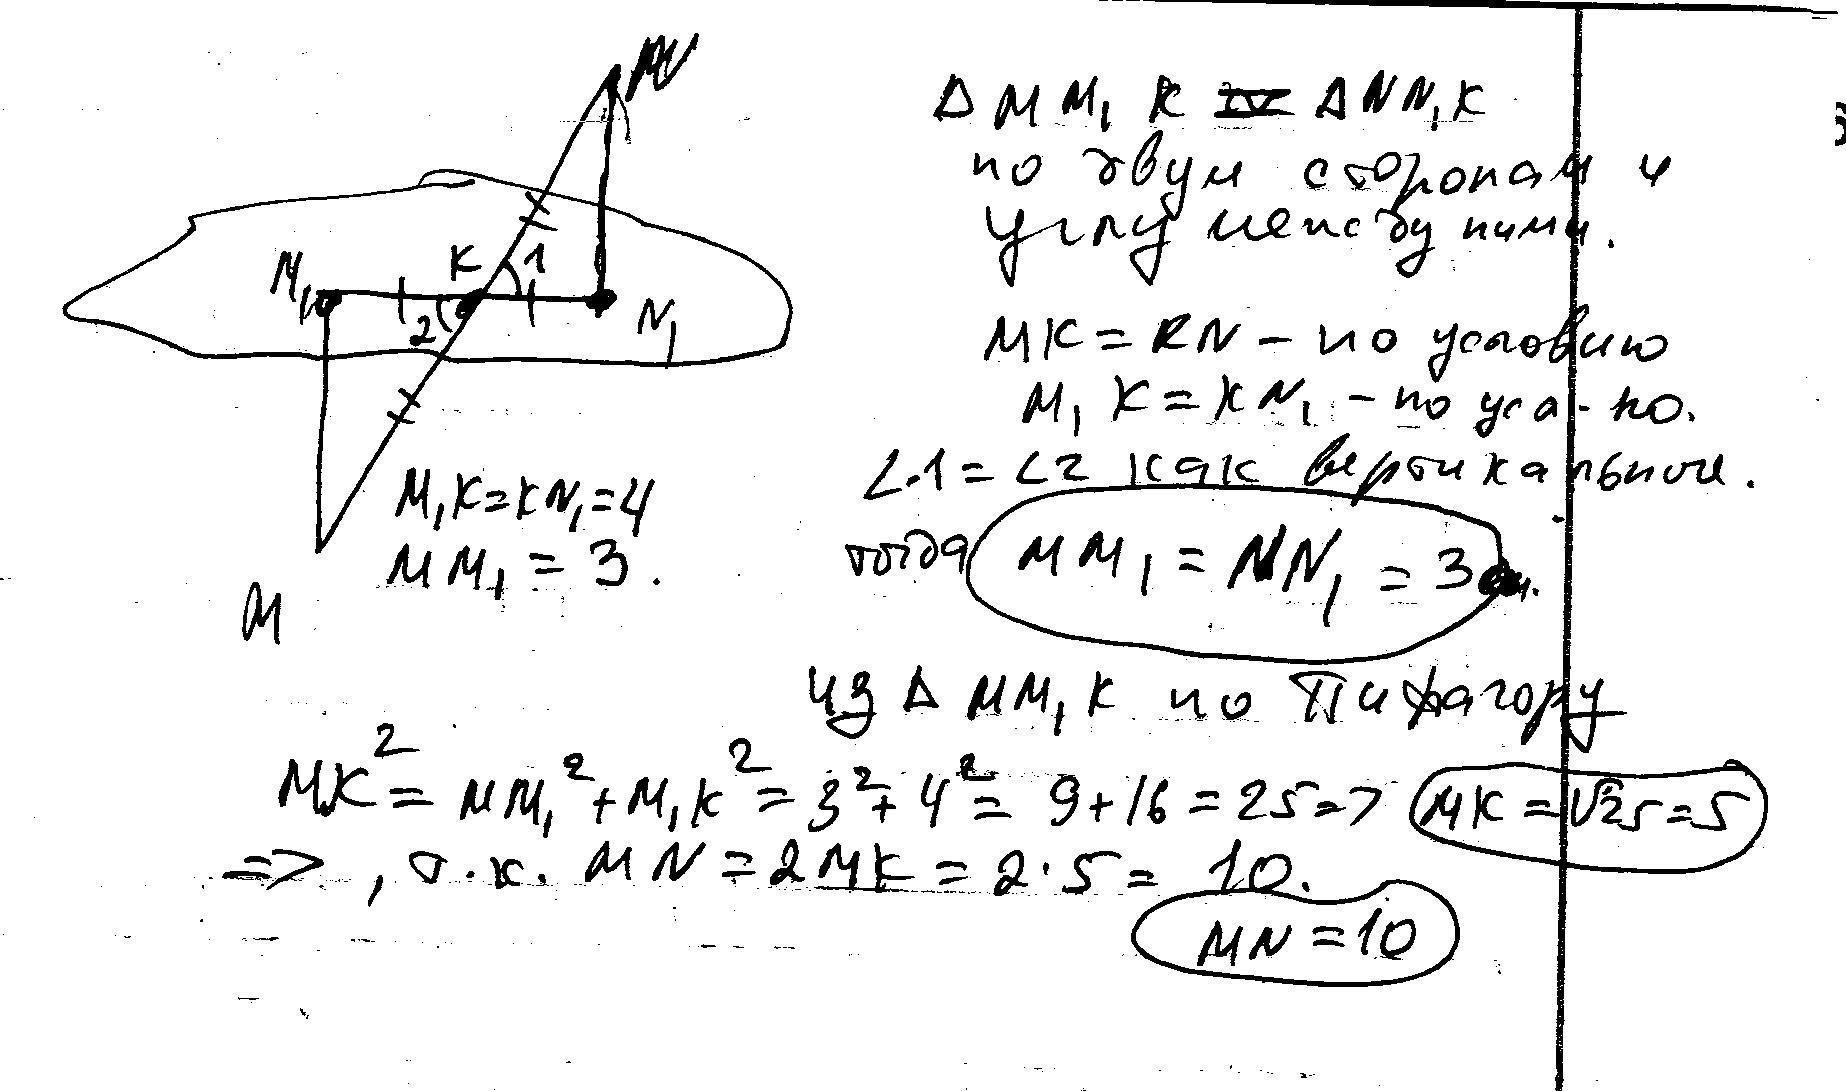 N
M₁
K
1
2
N₁
M
M₁K=KN₁=4
MM₁ = 3.
Δ MM₁K = ΔNN₁K
по двум сторонам и
углу между ними.
MK = KN – по условию
M₁K = KN₁ – по усл-ю.
∠1 = ∠2 как вертикальные.
тогда MM₁ = NN₁ = 3 см.
из Δ MM₁K по Пифагору
MK² = MM₁² + M₁K² = 3² + 4² = 9 + 16 = 25 => MK = √25 = 5
=> , т.к. MN = 2MK = 2·5 = 10.
MN = 10